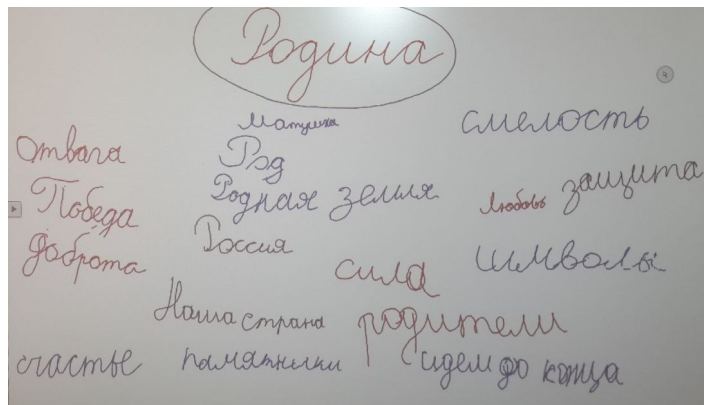 Родина
Матушка
смелость
отвага
Род
Победа
Родная земля
Любовь
защита
доброта
Россия
сила
символы
Наша страна
родители
счастье
памятники
идем до конца